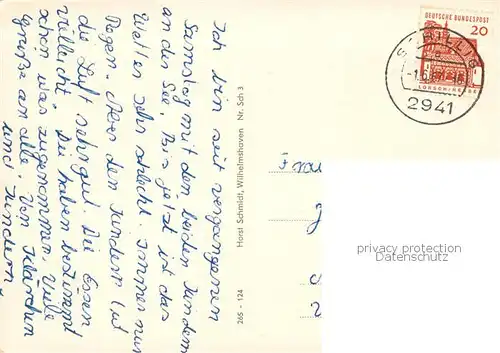 Ich bin seit vergangenen
Samstag mit den beiden Kindern
an der See, Bis jetzt ist das
Wetter sehr schlecht. Immer nur
Regen. Aber den Kindern tut
die Luft sehr gut. Die Essen
vielleicht. Die haben bestimmt
schon was zugenommen. Viele
Grüße an alle. Von Klärchen
und Kindern.
Horst Schmidt, Wilhelmshaven Nr. Sch 3
265 - 124
DEUTSCHE BUNDESPOST
20
LORSCH/HESSEN
SCHILLIG
2941
Frau
privacy protection
Datenschutz